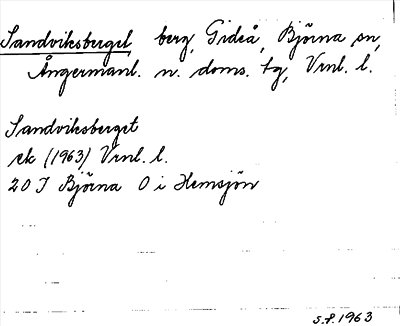 Sandviksberget, berg, Gideå, Björna sn,
Ångermanl. n. doms. tg, Vnl. l.
Sandviksberget
ek (1963) Vnl. l.
20 J Björna O i Hemsjön
S.f. 1963